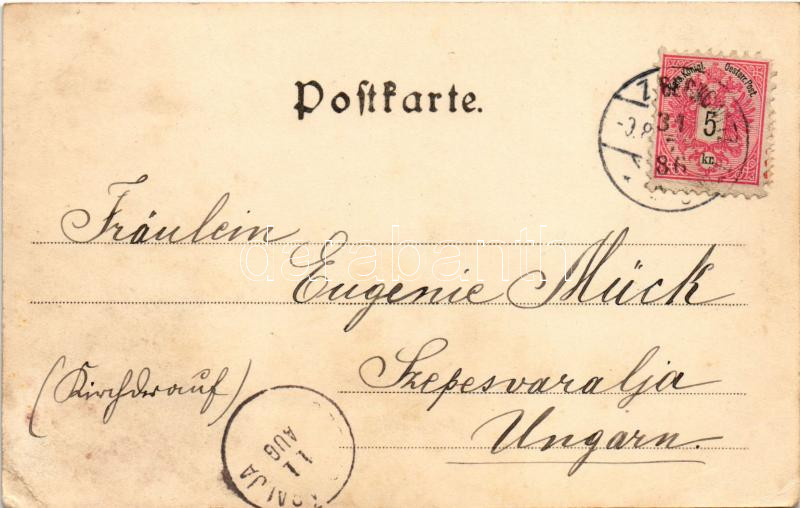 Postkarte.
Kais. Königl. Oesterr. Post.
5
kr.
31
86
Fräulein
Eugenie Mück
(Kirchdrauf) Szepesvaralja
Ungarn.
11
AUG
darabanth